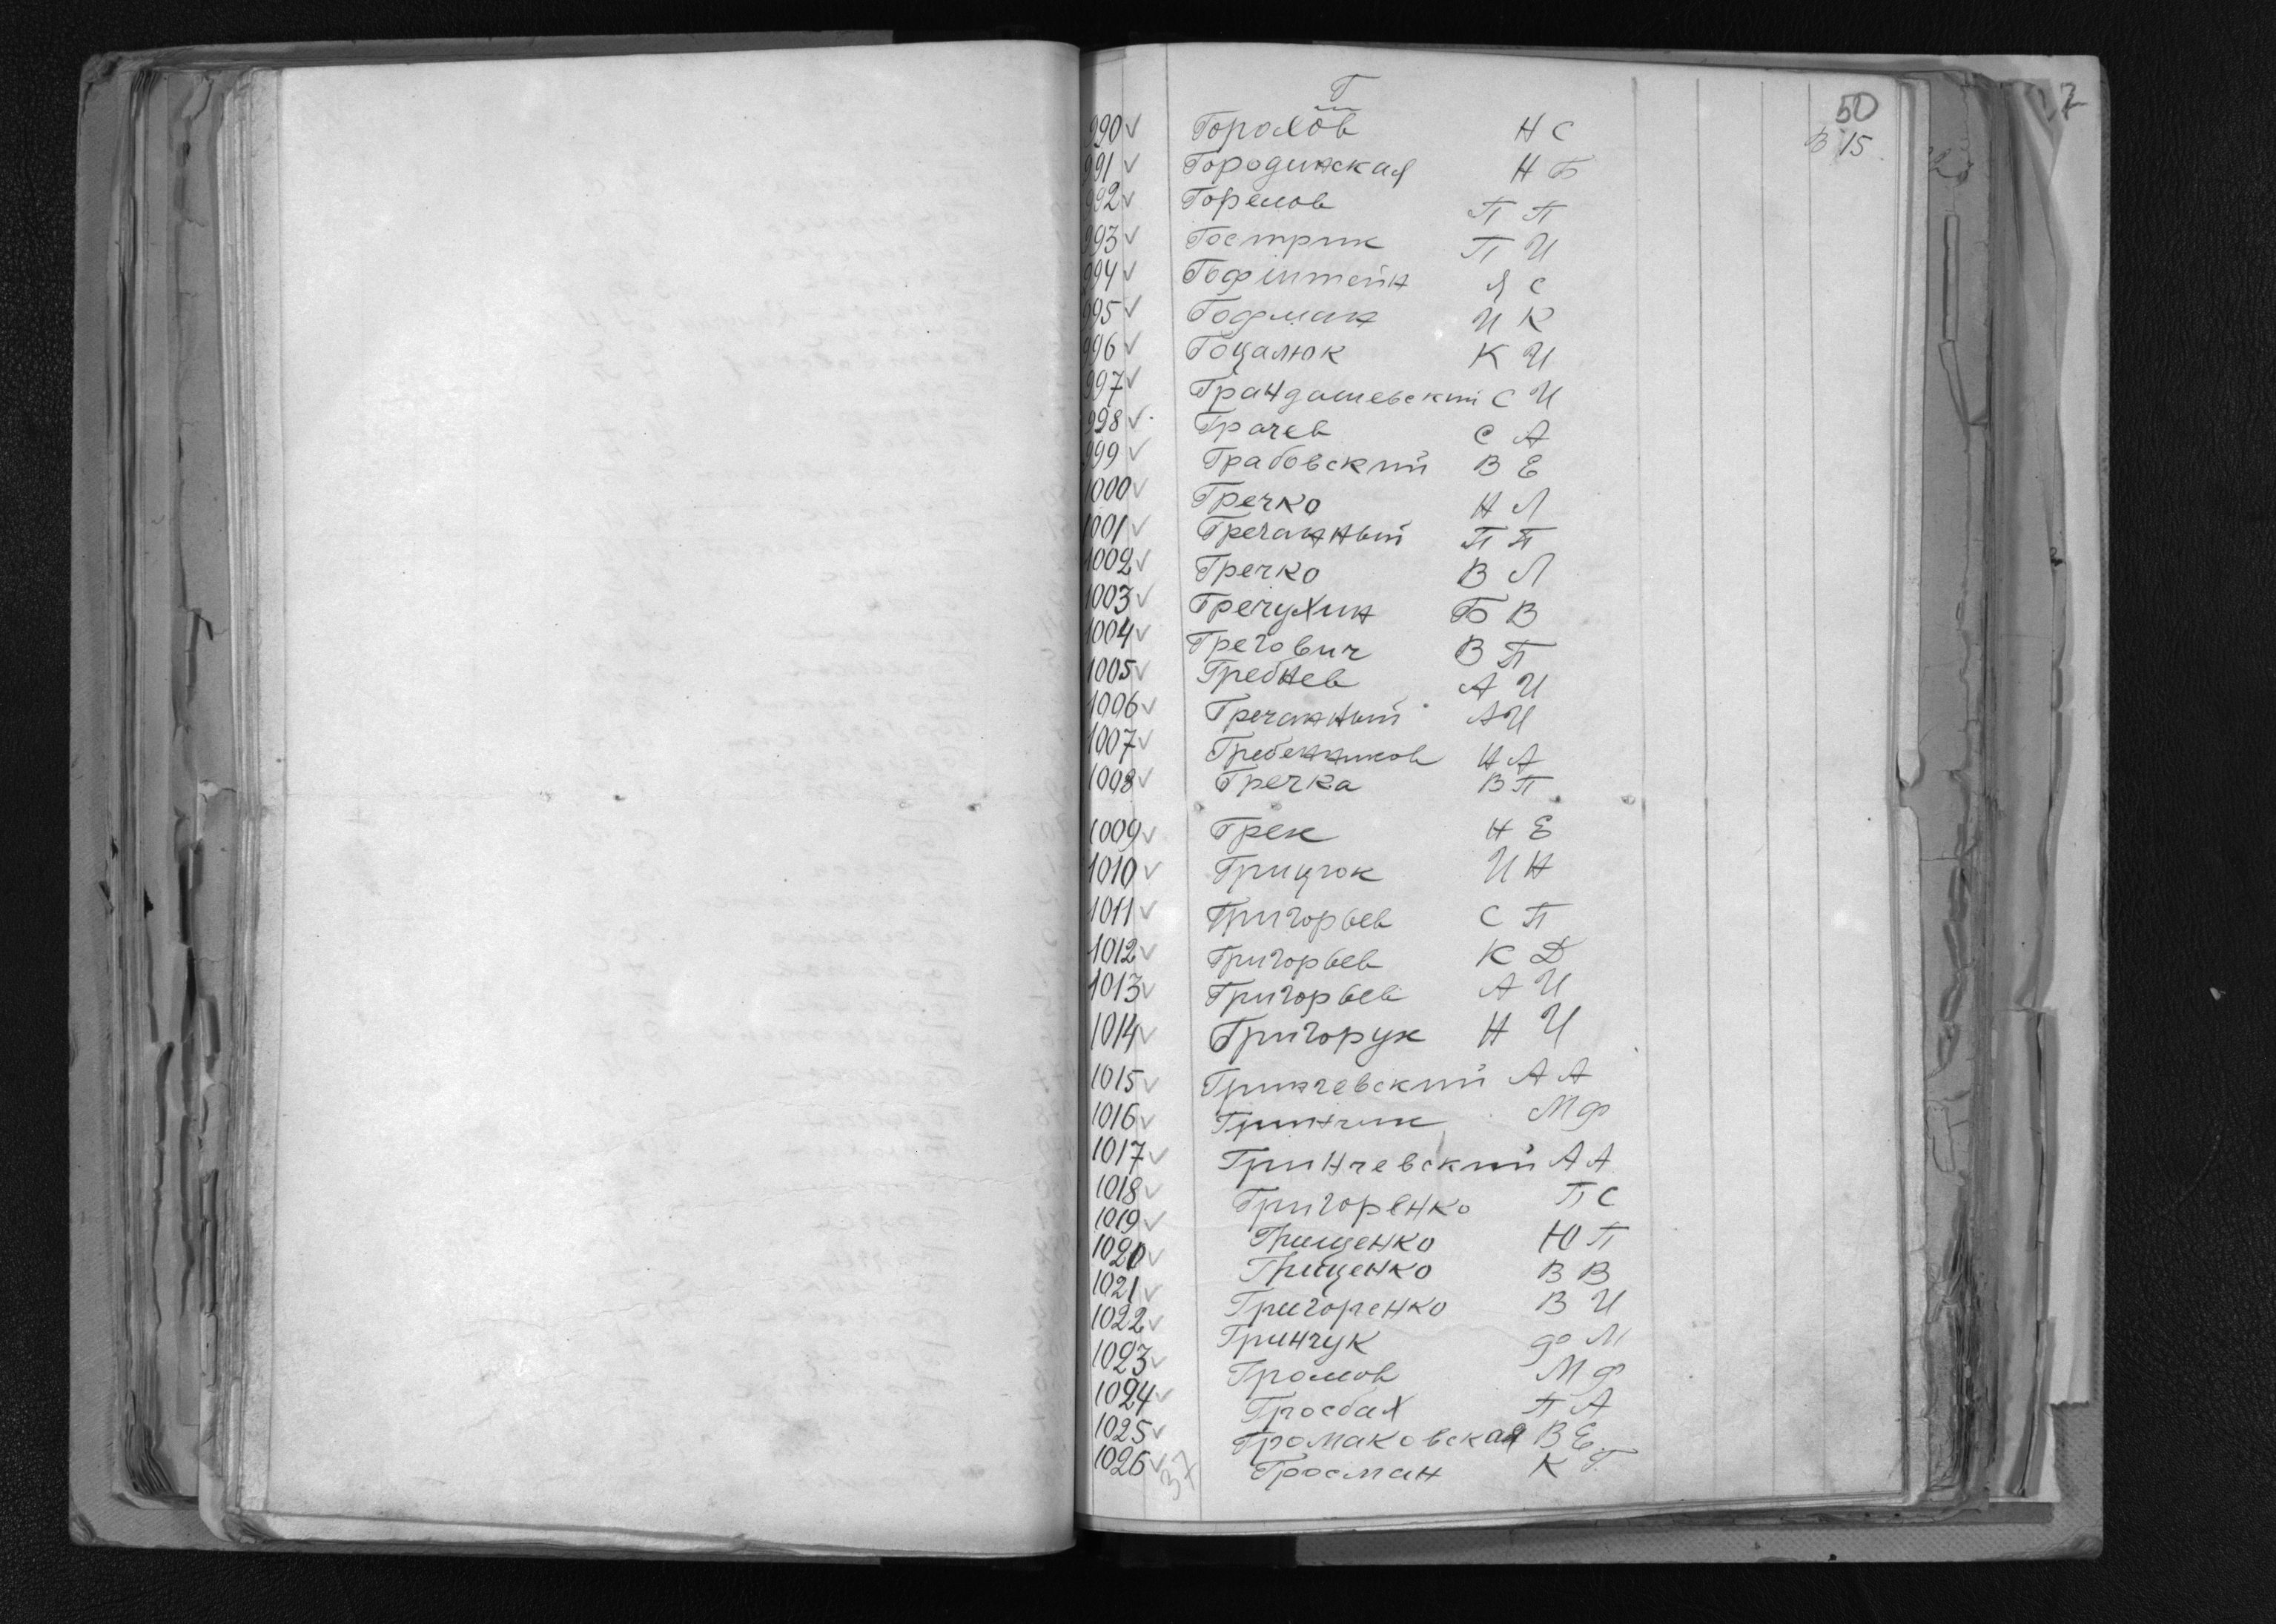 Г
50
В 15
990 ✓ Горохов Н С
991 ✓ Городинская Н Б
992 ✓ Горелов П П
993 ✓ Гострик П И
994 ✓ Гофштейн Я С
995 ✓ Гофман И К
996 ✓ Гоцалюк К И
997 ✓ Грандашевский С И
998 ✓ Грачев С А
999 ✓ Грабовский В Е
1000 ✓ Гречко Н Л
1001 ✓ Гречанный П П
1002 ✓ Гречко В Л
1003 ✓ Гречухин Б В
1004 ✓ Грегович В П
1005 ✓ Гребнев А И
1006 ✓ Гречанный А И
1007 ✓ Гребенников Н А
1008 ✓ Гречка В П
1009 ✓ Грек Н Е
1010 ✓ Грицюк И Н
1011 ✓ Григорьев С П
1012 ✓ Григорьев К Д
1013 ✓ Григорьев А И
1014 ✓ Григорук Н И
1015 ✓ Гринчевский А А
1016 ✓ Гринчик М Ф
1017 ✓ Гринчевский А А
1018 ✓ Григоренко П С
1019 ✓ Грищенко Ю П
1020 ✓ Грищенко В В
1021 ✓ Григоренко В И
1022 ✓ Гринчук Ф М
1023 ✓ Громов М Ф
1024 ✓ Гросбах П А
1025 ✓ Громаковская В Е
1026 ✓ Гросман К Г
37